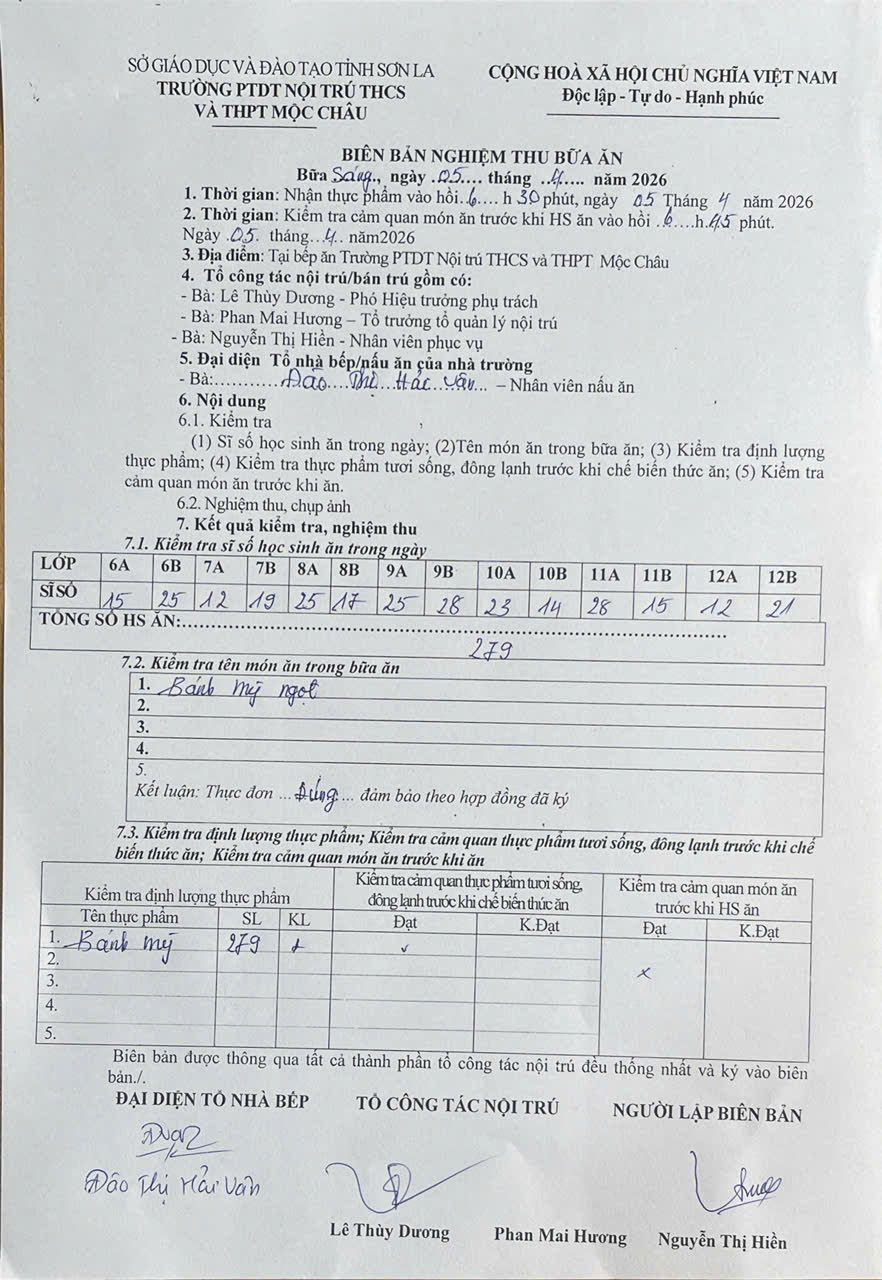 SỞ GIÁO DỤC VÀ ĐÀO TẠO TỈNH SƠN LA
TRƯỜNG PTDT NỘI TRÚ THCS
VÀ THPT MỘC CHÂU
CỘNG HOÀ XÃ HỘI CHỦ NGHĨA VIỆT NAM
Độc lập - Tự do - Hạnh phúc
BIÊN BẢN NGHIỆM THU BỮA ĂN
Bữa Sáng., ngày .05.... tháng ..4.... năm 2026
1. Thời gian: Nhận thực phẩm vào hồi..6.... h 30 phút, ngày 05 Tháng 4 năm 2026
2. Thời gian: Kiểm tra cảm quan món ăn trước khi HS ăn vào hồi .6....h.45 phút.
Ngày .05. tháng...4.. năm2026
3. Địa điểm: Tại bếp ăn Trường PTDT Nội trú THCS và THPT Mộc Châu
4. Tổ công tác nội trú/bán trú gồm có:
- Bà: Lê Thùy Dương - Phó Hiệu trưởng phụ trách
- Bà: Phan Mai Hương – Tổ trưởng tổ quản lý nội trú
- Bà: Nguyễn Thị Hiền - Nhân viên phục vụ
5. Đại diện Tổ nhà bếp/nấu ăn của nhà trường
- Bà:............Đào....Thị....Hải..Vân... – Nhân viên nấu ăn
6. Nội dung
6.1. Kiểm tra
(1) Sĩ số học sinh ăn trong ngày; (2)Tên món ăn trong bữa ăn; (3) Kiểm tra định lượng
thực phẩm; (4) Kiểm tra thực phẩm tươi sống, đông lạnh trước khi chế biến thức ăn; (5) Kiểm tra
cảm quan món ăn trước khi ăn.
6.2. Nghiệm thu, chụp ảnh
7. Kết quả kiểm tra, nghiệm thu
7.1. Kiểm tra sĩ số học sinh ăn trong ngày
LỚP 6A 6B 7A 7B 8A 8B 9A 9B 10A 10B 11A 11B 12A 12B
SĨ SỐ 15 25 12 19 25 17 25 28 23 14 28 15 12 21
TỔNG SỐ HS ĂN:..........................................................................................
279
7.2. Kiểm tra tên món ăn trong bữa ăn
1. Bánh mỳ ngọt
2.
3.
4.
5.
Kết luận: Thực đơn ...Đúng... đảm bảo theo hợp đồng đã ký
7.3. Kiểm tra định lượng thực phẩm; Kiểm tra cảm quan thực phẩm tươi sống, đông lạnh trước khi chế
biến thức ăn; Kiểm tra cảm quan món ăn trước khi ăn
Kiểm tra định lượng thực phẩm
Kiểm tra cảm quan thực phẩm tươi sống,
đông lạnh trước khi chế biến thức ăn
Kiểm tra cảm quan món ăn
trước khi HS ăn
Tên thực phẩm SL KL Đạt K.Đạt Đạt K.Đạt
1. Bánh mỳ 279 + ✓
2.
x
3.
4.
5.
Biên bản được thông qua tất cả thành phần tổ công tác nội trú đều thống nhất và ký vào biên
bản./.
ĐẠI DIỆN TỔ NHÀ BẾP TỔ CÔNG TÁC NỘI TRÚ NGƯỜI LẬP BIÊN BẢN
Đào Thị Hải Vân
Lê Thùy Dương Phan Mai Hương Nguyễn Thị Hiền